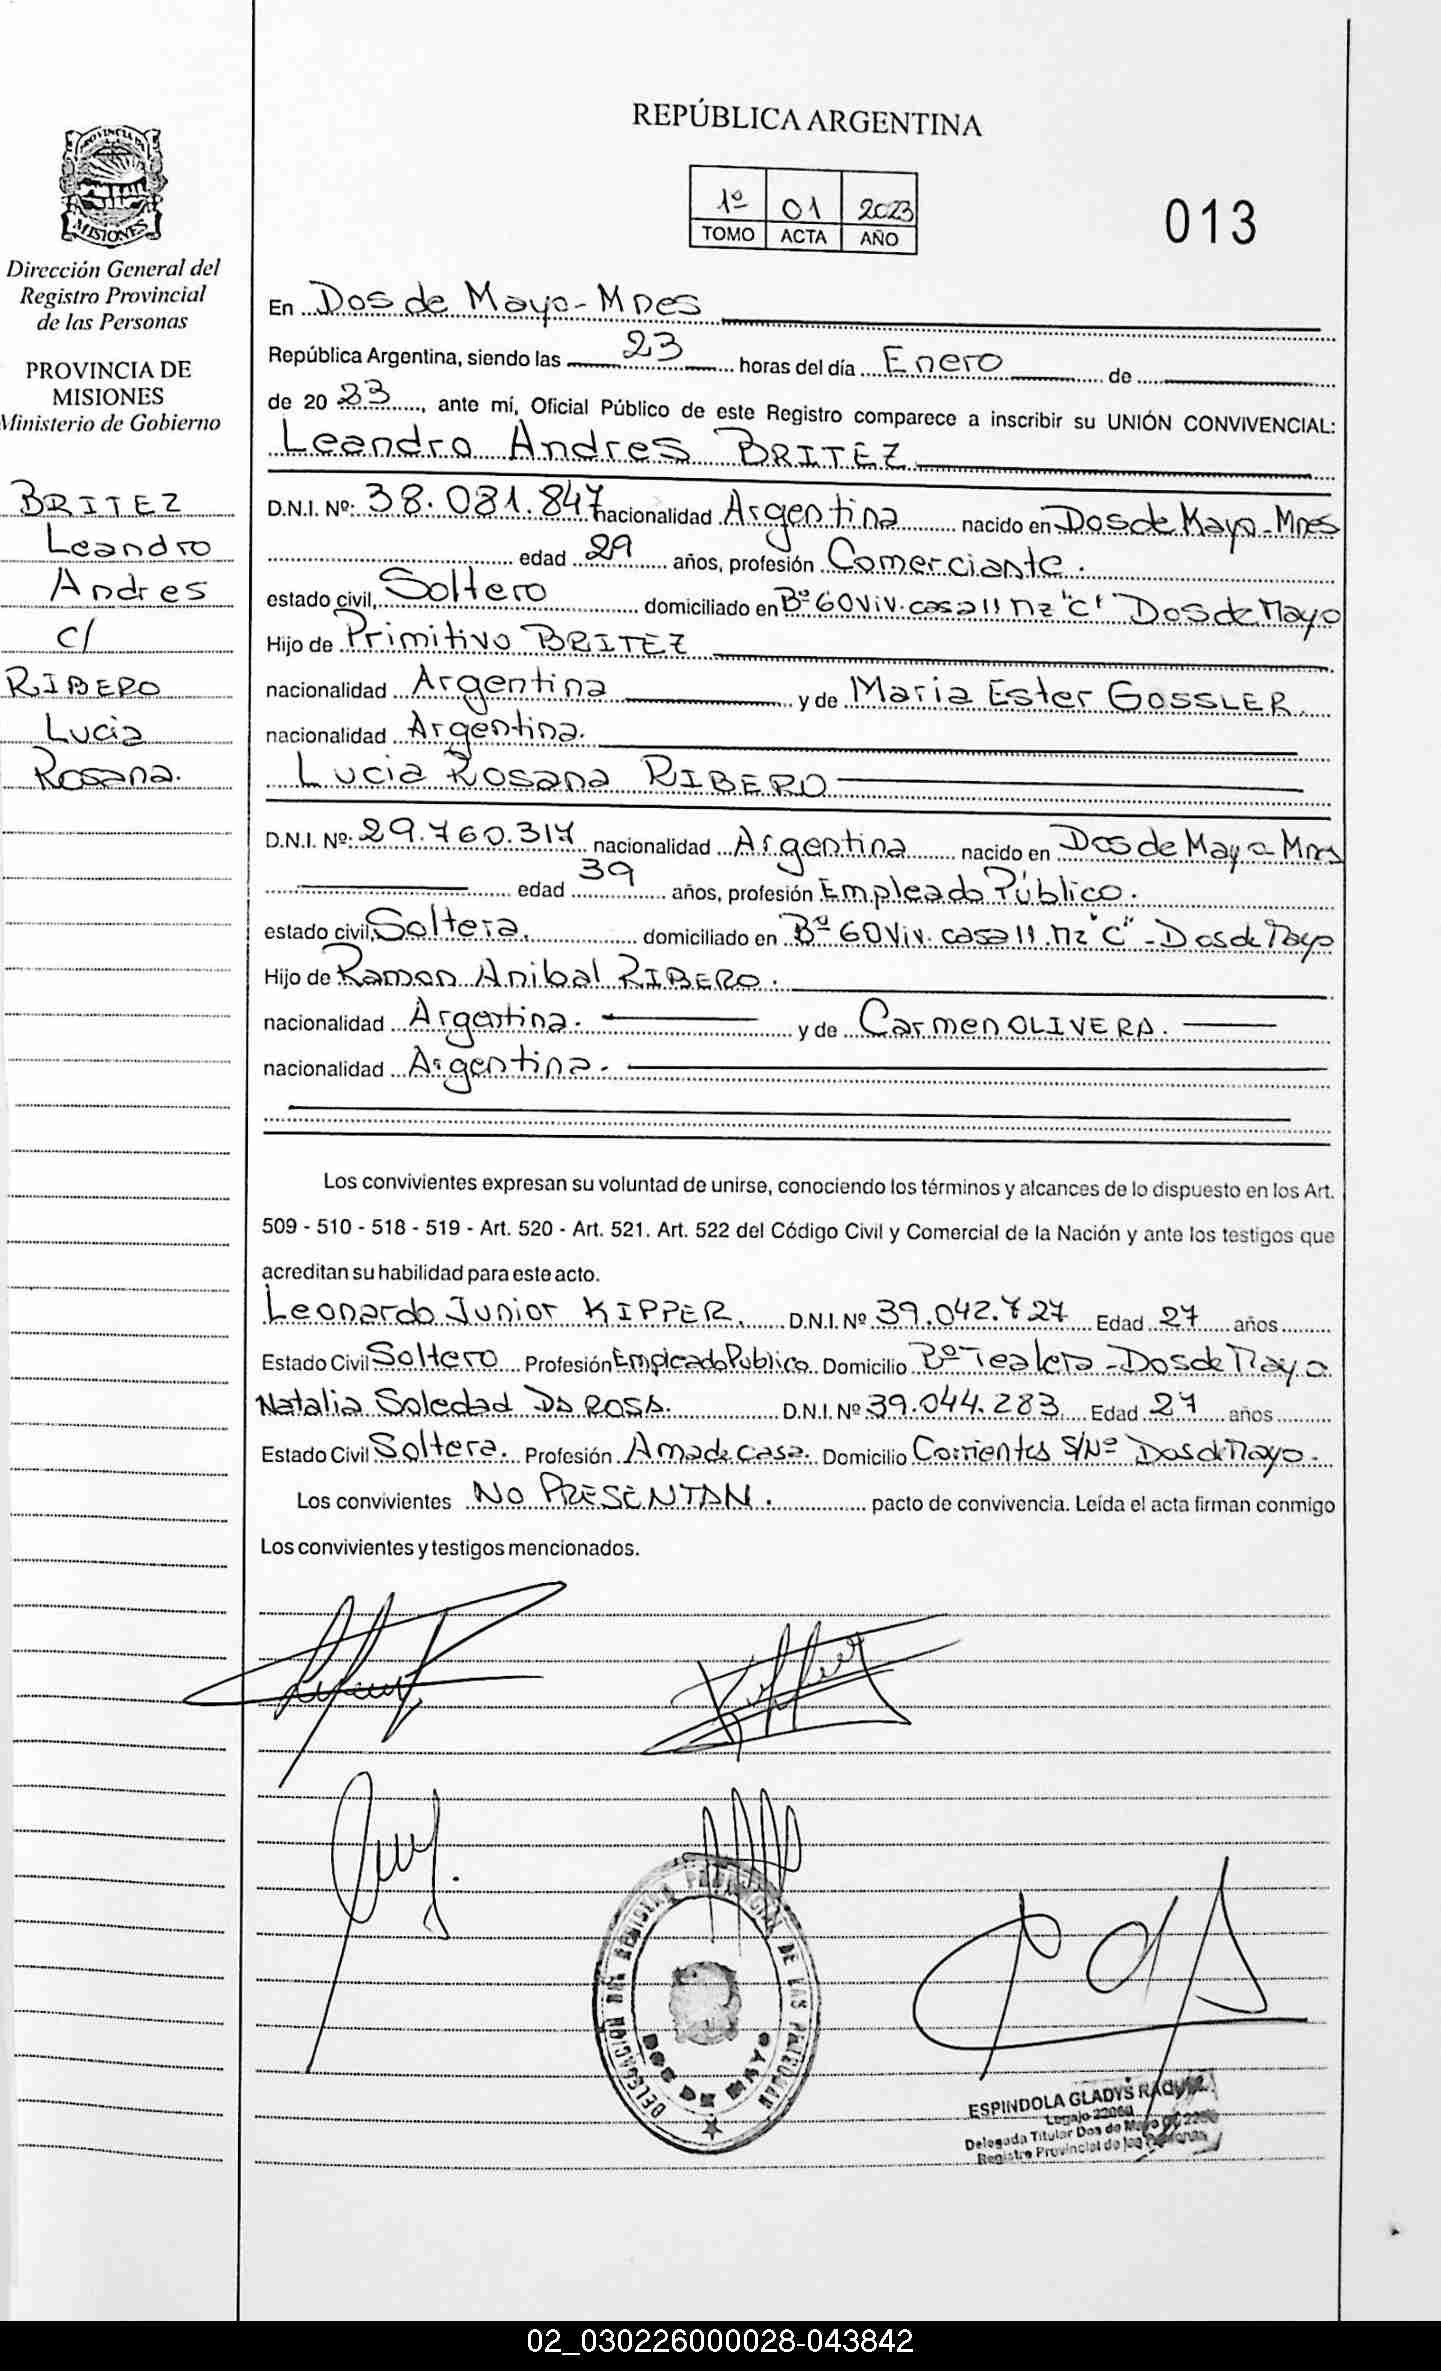 REPÚBLICA ARGENTINA
1º 01 2023
TOMO ACTA AÑO
013
PROVINCIA DE
MISIONES
Dirección General del
Registro Provincial
de las Personas
PROVINCIA DE
MISIONES
Ministerio de Gobierno
BRITEZ
Leandro
Andres
c/
RIBERO
Lucia
Rosana.
En Dos de Mayo-Mnes
República Argentina, siendo las 23 horas del día Enero de
de 20 23, ante mí, Oficial Público de este Registro comparece a inscribir su UNIÓN CONVIVENCIAL:
Leandro Andres BRITEZ
D.N.I. Nº: 38.081.847 nacionalidad Argentina nacido en Dos de Mayo-Mnes
edad 29 años, profesión Comerciante.
estado civil, Soltero domiciliado en Bº 60 Viv. casa 11 Mz "C" Dos de Mayo
Hijo de Primitivo BRITEZ
nacionalidad Argentina y de Maria Ester GOSSLER.
nacionalidad Argentina.
Lucia Rosana RIBERO
D.N.I. Nº: 29.760.317 nacionalidad Argentina nacido en Dos de Mayo Mnes
edad 39 años, profesión Empleado Público.
estado civil, Soltera. domiciliado en Bº 60 Viv. casa 11 Mz "C" - Dos de Mayo
Hijo de Ramon Anibal RIBERO.
nacionalidad Argentina. y de Carmen OLIVERA.
nacionalidad Argentina.
Los convivientes expresan su voluntad de unirse, conociendo los términos y alcances de lo dispuesto en los Art.
509 - 510 - 518 - 519 - Art. 520 - Art. 521. Art. 522 del Código Civil y Comercial de la Nación y ante los testigos que
acreditan su habilidad para este acto.
Leonardo Junior KIPPER. D.N.I. Nº 39.042.727 Edad 27 años
Estado Civil Soltero Profesión Empleado Publico. Domicilio Bº Tealera - Dos de Mayo
Natalia Soledad DA ROSA. D.N.I. Nº 39.044.283 Edad 27 años
Estado Civil Soltera. Profesión Ama de casa. Domicilio Corrientes S/Nº Dos de Mayo.
Los convivientes NO PRESENTAN. pacto de convivencia. Leída el acta firman conmigo
Los convivientes y testigos mencionados.
Kipper
DELEGACION DEL REGISTRO PROVINCIAL DE LAS PERSONAS
DOS DE MAYO
ESPINDOLA GLADYS RAQUEL
Legajo
Delegada Titular Dos de Mayo
Registro Provincial de las Personas
02_030226000028-043842